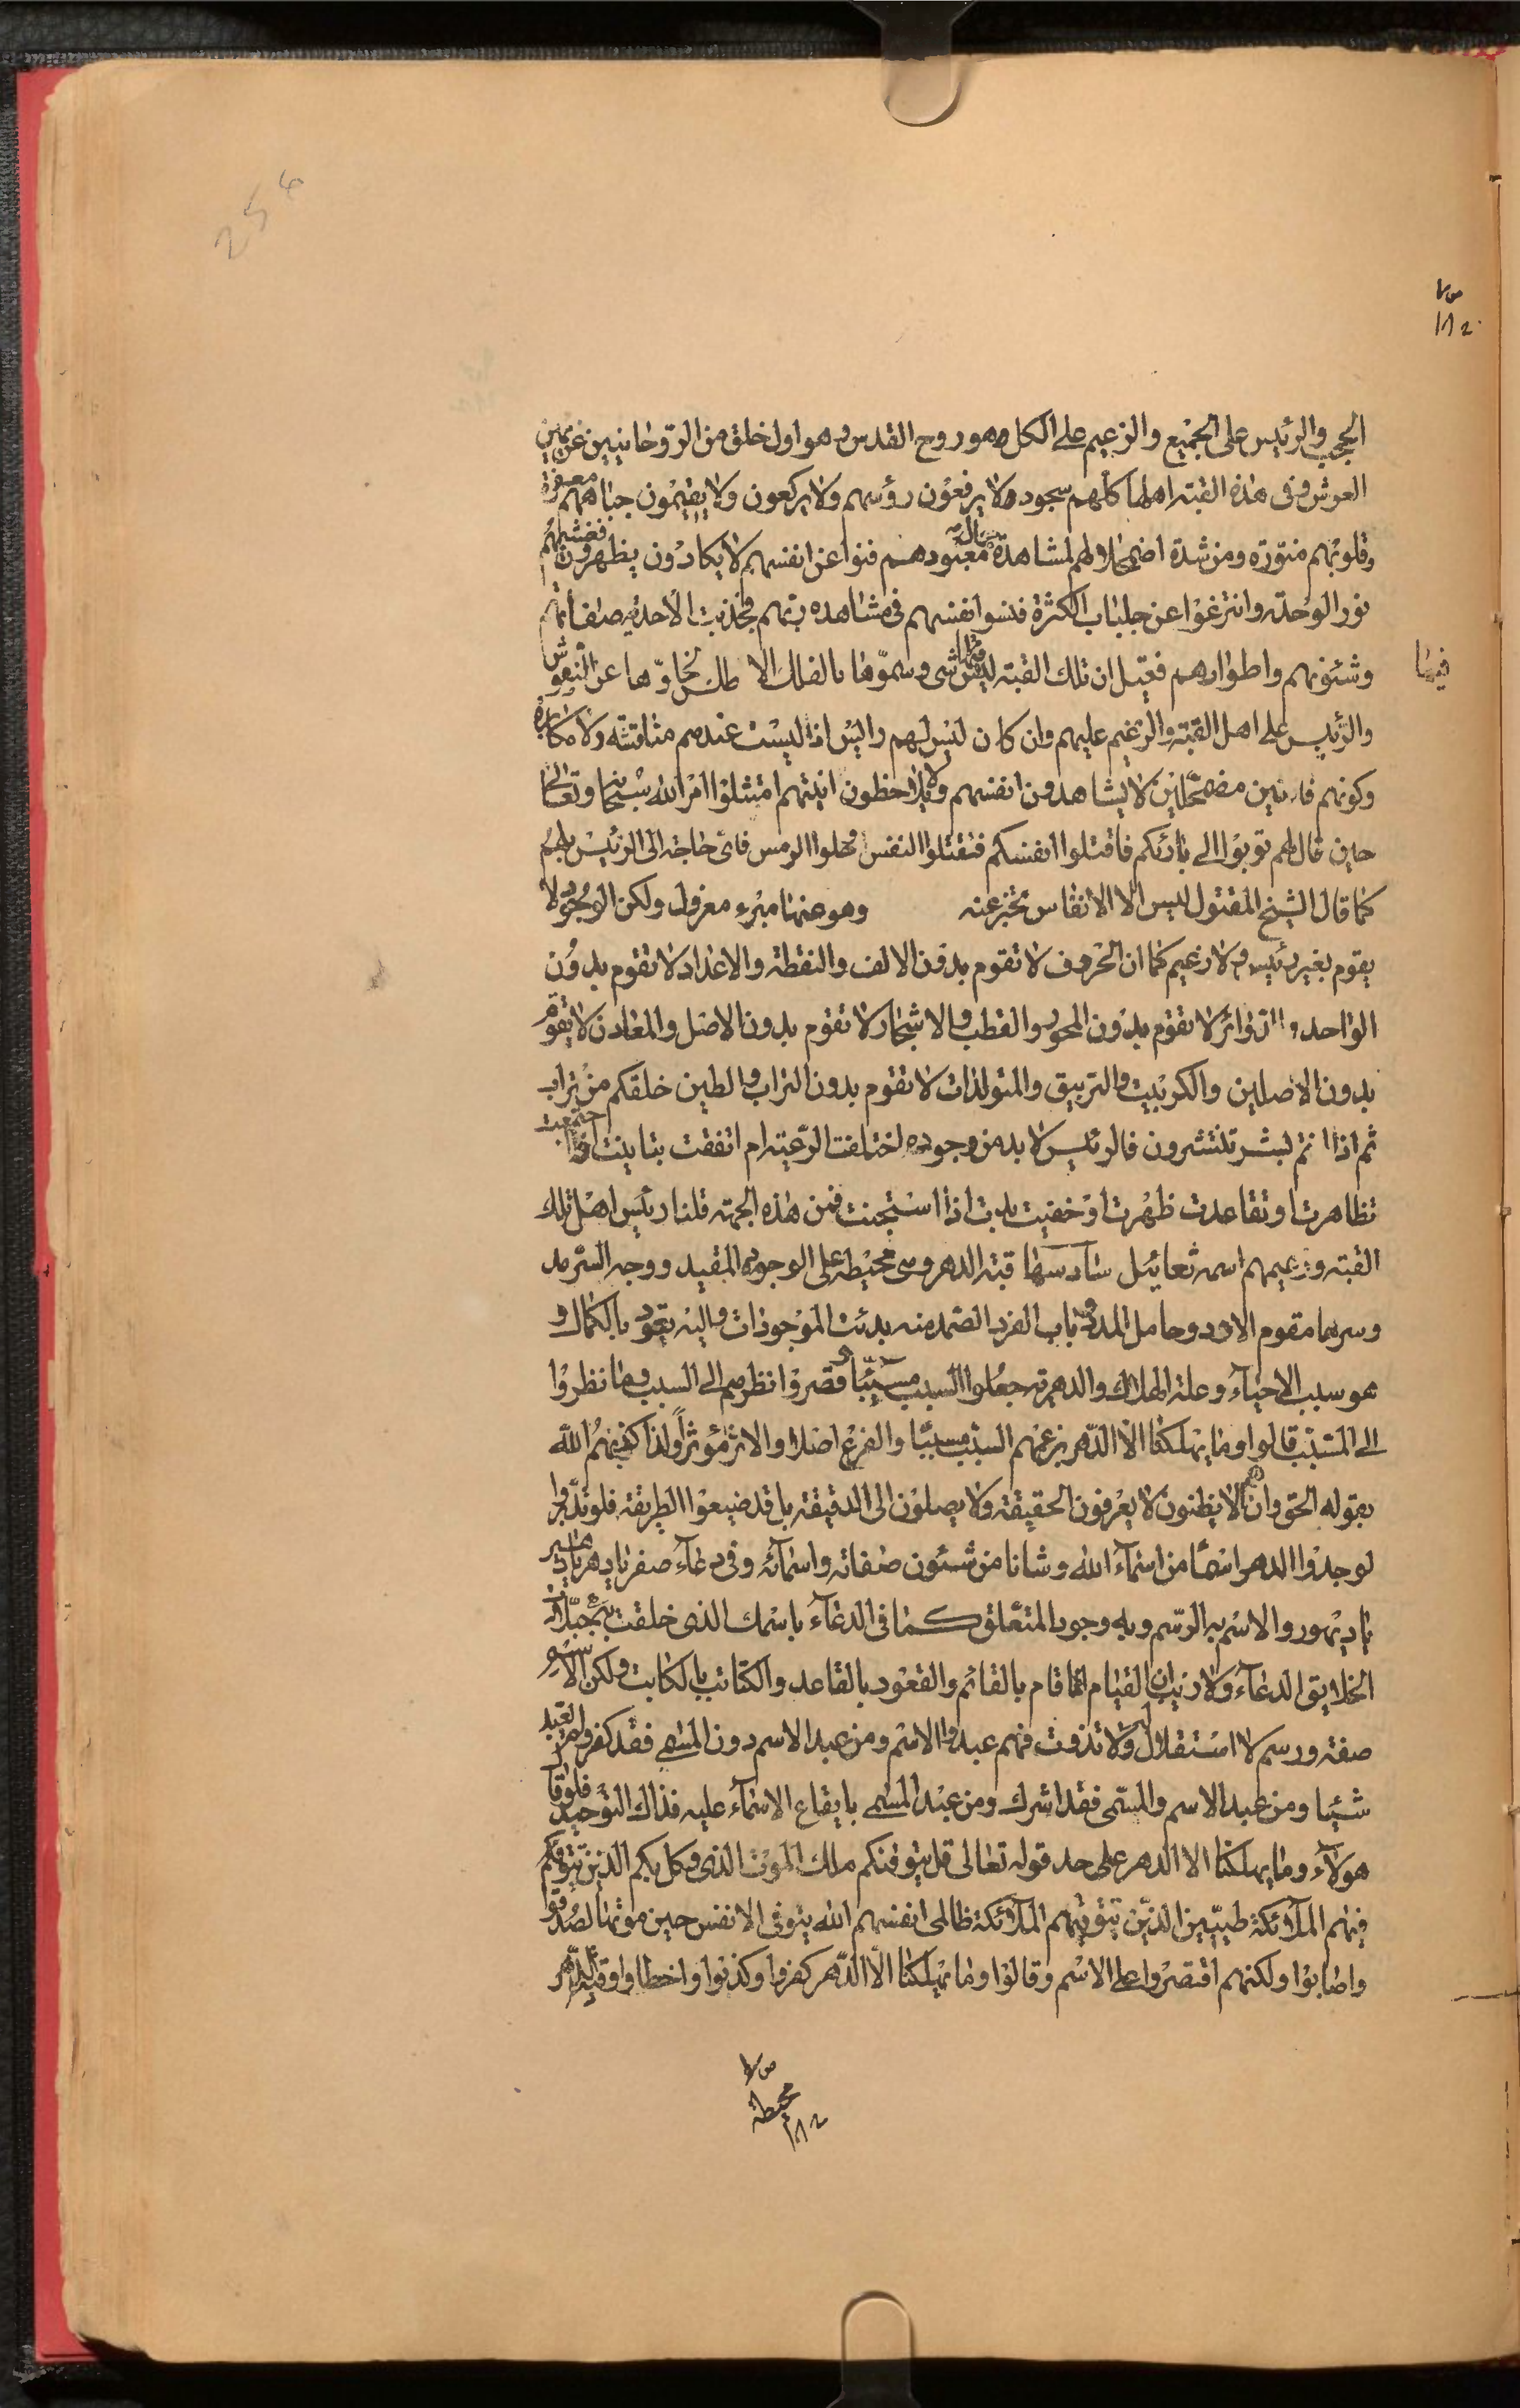 254
ص ۷
۱۸۲
الحجب والرئيس على الجميع والزعيم على الكل وهو روح القدس وهو اول خلق من الروحانيين عن يمين
العرش وفى هذه القبة اهلها كلهم سجود ولا يرفعون رؤسهم ولا يركعون ولا يقيمون جباههم معفرة
وقلوبهم منورة ومن شدة اضمحلالهم لمشاهدة جمال معبودهم فنوا عن انفسهم لا يكادون يظهرون فغشيهم
نور الوحدة وانتزعوا عن جلباب الكثرة فنسوا انفسهم فى مشاهدة ربهم فجذبت الاحدية صفاتهم
وشئونهم واطوارهم فقيل ان تلك القبة ليس فيها شى وسموها بالفلك الاطلس لخلوها عن النقوش
فيها
والرئيس على اهل القبة والزعيم عليهم وان كان ليس لهم رئيس اذ ليست عندهم مناقشة ولا مكابرة
وكونهم فانين مضمحلين لا يشاهدون انفسهم ولا يلاحظون انيتهم امتثلوا امر الله سبحانه وتعالى
حين قال لهم توبوا الى بارئكم فاقتلوا انفسكم فقتلوا النفس وحلوا الرمس فاى حاجة الى الرئيس لهم
كما قال الشيخ المقتول ليس الا الانفاس تخبر عنه وهو عنها مبرء معزول ولكن الوجود لا
يقوم بغير رئيس ولا زعيم كما ان الحروف لا تقوم بدون الالف والنقطة والاعداد لا تقوم بدون
الواحد والدوائر لا تقوم بدون المحور والقطب والاشجار لا تقوم بدون الاصل والمعادن لا تقوم
بدون الاصلين والكبريت والزيبق والمتولدات لا تقوم بدون التراب والطين خلقكم من تراب
ثم اذا انتم بشر تنتشرون فالرئيس لا بد من وجوده اختلفت الرعية ام اتفقت تباينت او اجتمعت
تظاهرت او تقاعدت ظهرت او خفيت بدت اذا استجنت فمن هذه الجهة قلنا رئيس اهل تلك
القبة وزعيمهم اسمه ثعائيل سادسها قبة الدهر وهى محيطة على الوجود المقيد ووجه السرمد
وسرها مقوم الادد وحامل المدد وباب الفرد الصمد منه بدئت الموجودات واليه تعود بالكمال و
هو سبب الاحياء وعلة الهلاك والدهرية جعلوا السبب مسببا وقصروا نظرهم الى السبب وما نظروا
الى المسبب قالوا وما يهلكنا الا الدهر بزعمهم السبب مسببا والفرع اصلا والاثر مؤثرا ولذا كذبهم الله
بقوله الحق وان هم الا يظنون لا يعرفون الحقيقة ولا يصلون الى الدقيقة بل قد ضيعوا الطريقة فلو تدبروا
لوجدوا الدهر اسما من اسماء الله وشانا من شئون صفاته واسمائه وفى دعاء صفر يا دهر يا ديهير
يا ديهور والاسم به الرسم وبه وجود المتعلق كما فى الدعاء باسمك الذى خلقت به جميع
الخلايق الدعاء ولا ريب ان القيام انما قام بالقائم والقعود بالقاعد والكتاب بالكاتب ولكن الاسم
صفة ورسم لا استقلال له ولا تذوت فهم عبدوا الاسم ومن عبد الاسم دون المسمى فقد كفر ولم يعبد
شيئا ومن عبد الاسم والمسمى فقد اشرك ومن عبد المسمى بايقاع الاسماء عليه فذاك التوحيد فلو قال
هولاء وما يهلكنا الا الدهر على حد قوله تعالى قل يتوفنكم ملك الموت الذى وكل بكم الذين تتوفيكم
فيهم الملائكة طيبين الذين تتوفيهم الملائكة ظالمى انفسهم الله يتوفى الانفس حين موتها لصدقوا
واصابوا ولكنهم اقتصروا على الاسم وقالوا وما يهلكنا الا الدهر كفروا وكذبوا واخطاوا وقبة الدهر
ص ۷
محيطة
۱۸۲